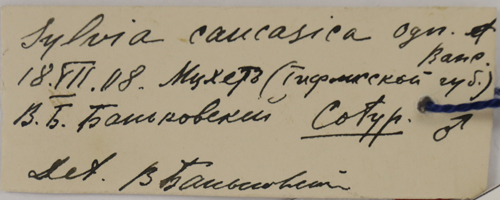 Sylvia caucasica Огн. et
Банк.
18.VII.08. Мцхетъ (Тифлисской губ.)
В.Б. Баньковский Cotyp. ♂
Det. В Баньковский